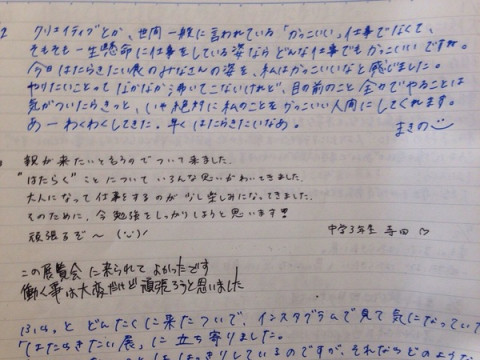 クリエイティブとか、世間一般に言われている「かっこいい」仕事でなくて、
そもそも一生懸命に仕事をしている姿ならどんな仕事でもかっこいいですね。
今日はたらきたい展のみなさんの姿を、私はかっこいいなと感じました。
やりたいことってなかなか沸いてこないけれど、目の前のこと全力でやることは
気がついたらきっと、いや絶対に私のことをかっこいい人間にしてくれます。
あーわくわくしてきた。早くはたらきたいなあ。
まきの
親が来たいと言うのでついて来ました。
"はたらく"ことについていろんな思いがわいてきました。
大人になって仕事をするのが少し楽しみになってきました。
そのために、今勉強をしっかりしようと思います!!
頑張るぞ〜 (˙◡˙)/
中学3年生 寺田 ♡
この展覧会に来られてよかったです
働く事は大変だけど頑張ろうと思いました
と どんたくに来たついで、インスタグラムで見て気になっていた
「はたらきたい展」に立ち寄りました。
はっきりしているのですが、それならどのような